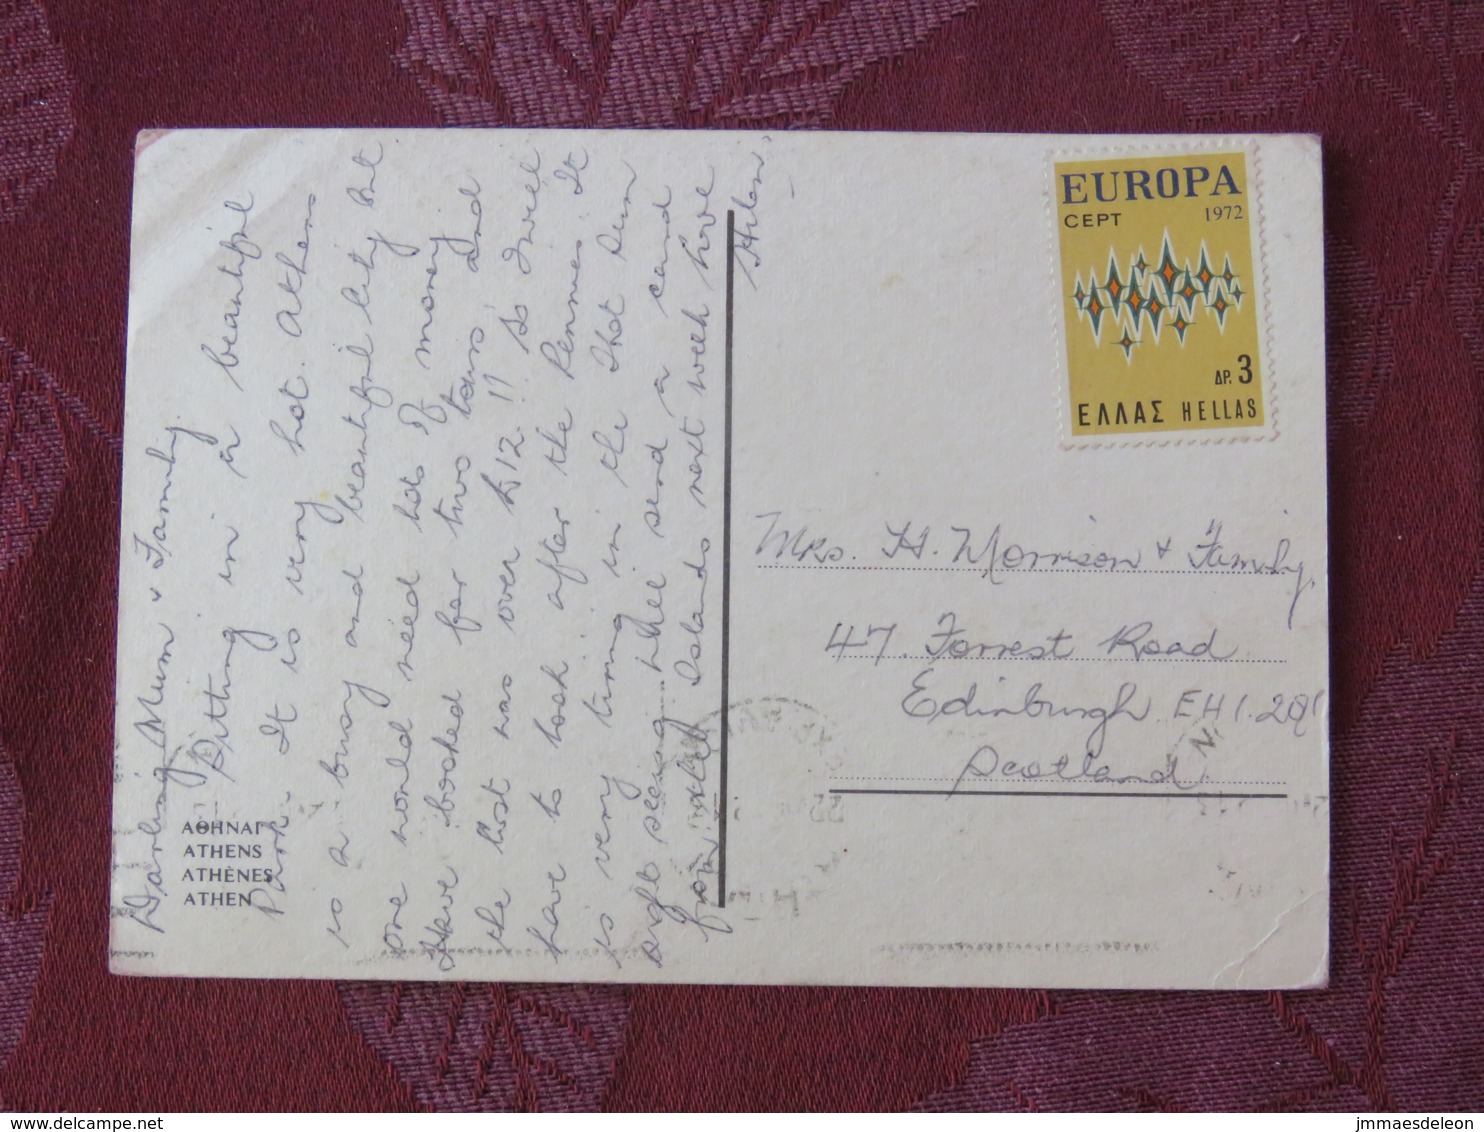 Darling Mum & Family.
Sitting in a beautiful
Park. It is very hot. Athens
is a busy and beautiful City but
one would need lots of money.
Have booked for two tours and
the cost was over £12!! So I will
have to look after the Pennies. It
is very tiring in the Hot Sun
sight seeing. Will send a card
from Islands next week love
Helen.
ΑΘΗΝΑΙ
ATHENS
ATHÈNES
ATHEN
EUROPA
CEPT 1972
ΔΡ. 3
ΕΛΛΑΣ HELLAS
Mrs. H. Morrison & Family,
47. Forrest Road
Edinburgh EH1.2Q
Scotland
delcampe.net
jmmaesdeleon